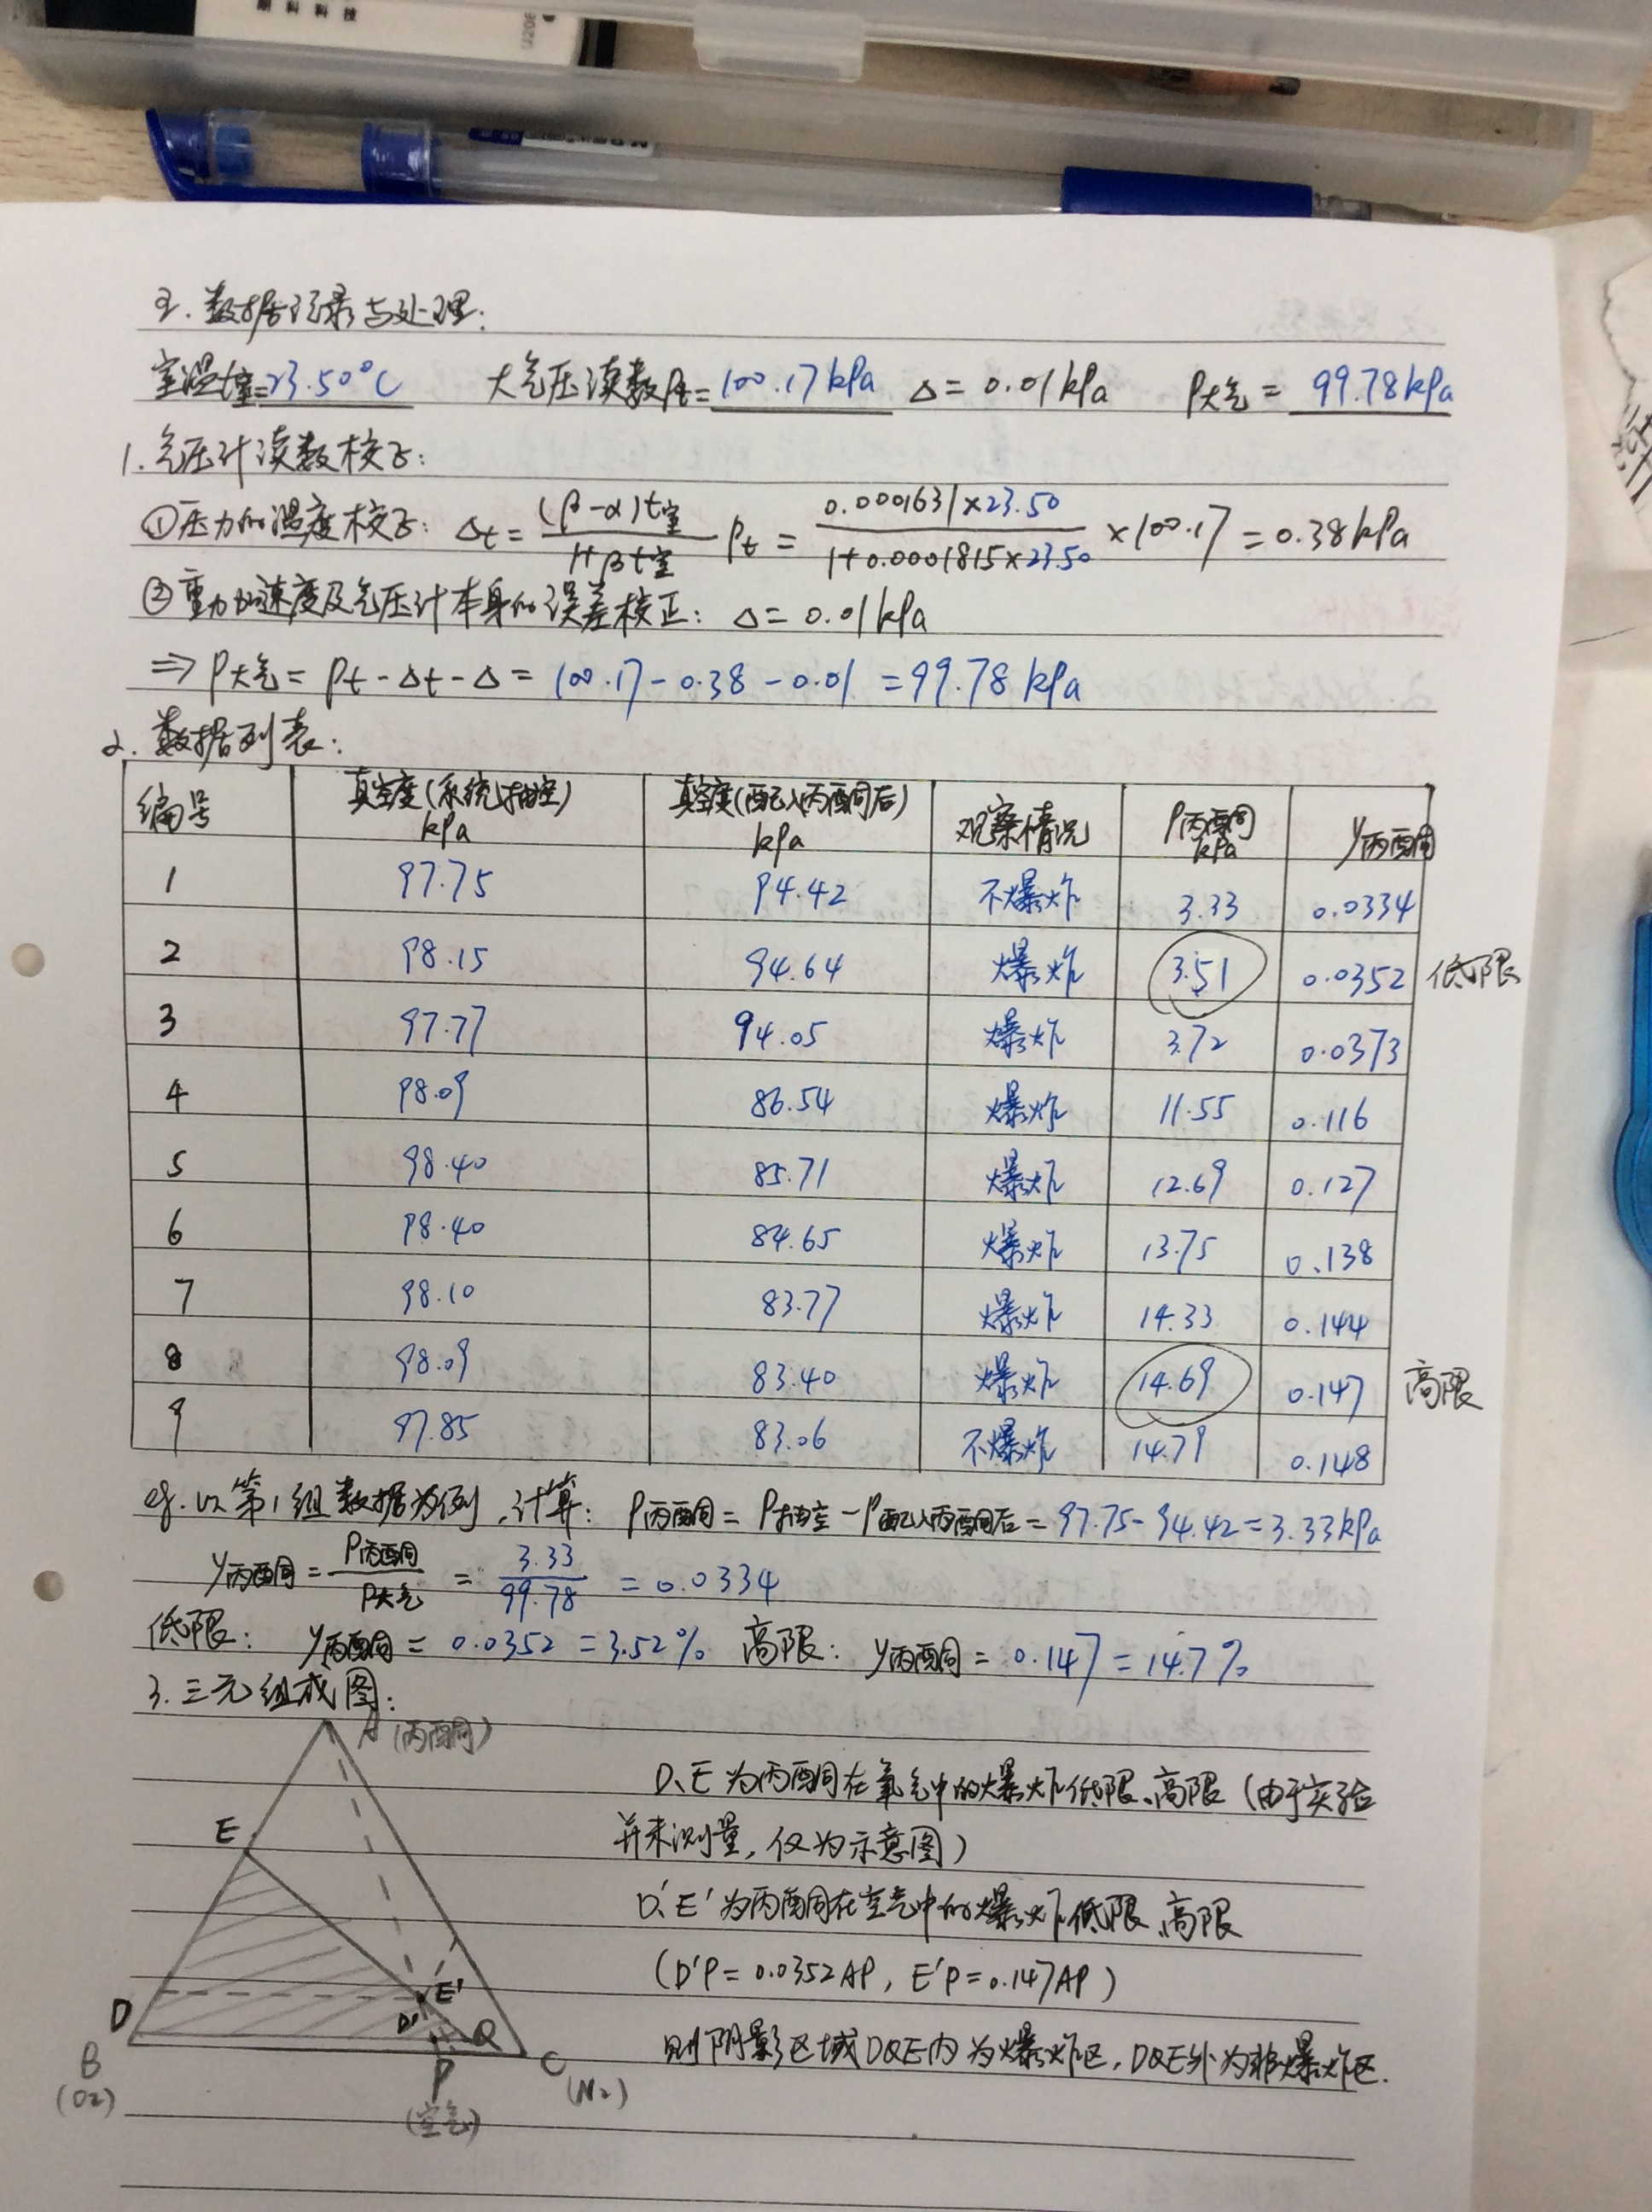 朗科科技
五. 数据记录与处理:
室温t室=23.50°C 大气压读数Pt=100.17kPa Δ=0.01kPa P大气=99.78kPa
1.气压计读数校正:
①压力的温度校正: Δt=(β-α)t室/1+βt室 Pt=0.0001631×23.50/1+0.0001815×23.50×100.17=0.38kPa
②重力加速度及气压计本身的误差校正: Δ=0.01kPa
⇒P大气=Pt-Δt-Δ=100.17-0.38-0.01=99.78kPa
2. 数据列表:
编号 真空度(系统抽空)kPa 真空度(配入丙酮后)kPa 观察情况 P丙酮kPa y丙酮
1 97.75 94.42 不爆炸 3.33 0.0334
2 98.15 94.64 爆炸 3.51 0.0352 低限
3 97.77 94.05 爆炸 3.72 0.0373
4 98.09 86.54 爆炸 11.55 0.116
5 98.40 85.71 爆炸 12.69 0.127
6 98.40 84.65 爆炸 13.75 0.138
7 98.10 83.77 爆炸 14.33 0.144
8 98.09 83.40 爆炸 14.69 0.147 高限
9 97.85 83.06 不爆炸 14.79 0.148
eg. 以第1组数据为例,计算: P丙酮=P抽空-P配入丙酮后=97.75-94.42=3.33kPa
y丙酮=P丙酮/P大气=3.33/99.78=0.0334
低限: y丙酮=0.0352=3.52% 高限: y丙酮=0.147=14.7%
3.三元组成图:
A(丙酮)
D、E为丙酮在氧气中的爆炸低限、高限(由于实验
并未测量,仅为示意图)
E
D'、E'为丙酮在空气中的爆炸低限、高限
(D'P=0.0352AP, E'P=0.147AP)
E'
D D' Q
则阴影区域DQE内为爆炸区,DQE外为非爆炸区.
B P C
(O2) (空气) (N2)